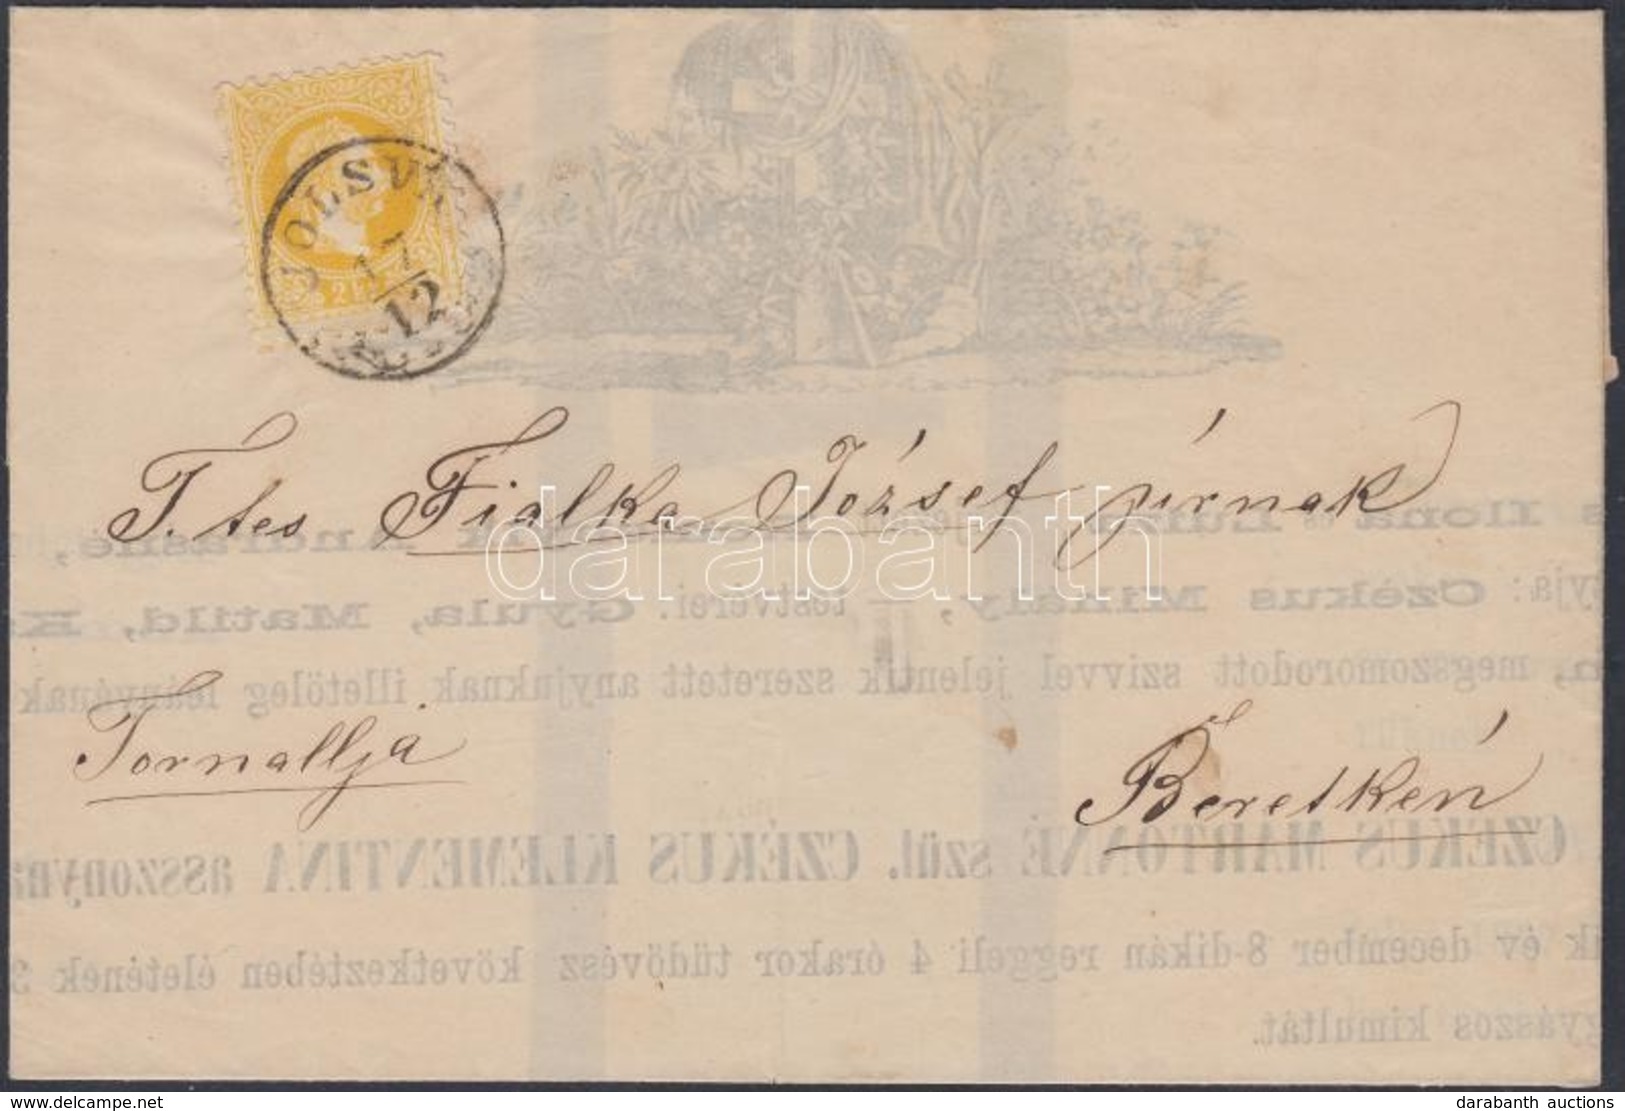 JOLSVA
17
12
T. tes Fialka József úrnak
s Ilona s Lujza
Andrásné,
darabanth
yja: Czékus Mihály, testvérei: Gyula, Matild, K
megszomorodott szivvel jelentik szeretett anyjuknak illetőleg leányának
Tornallja
Beretkén
CZÉKUS MÁRTONNÉ szül. CZÉKUS KLEMENTINA asszonyna
év december 8-dikán reggeli 4 órakor tüdővész következtében életének 3
gyászos kimultát.
www.delcampe.net
darabanth auctions